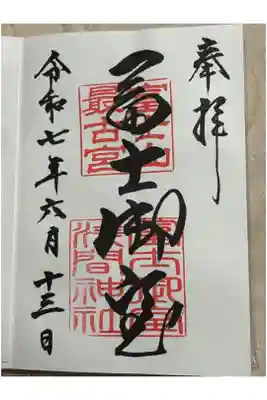 奉拝
冨士御室
富士山
最古宮
冨士御室
浅間神社
令和七年六月十三日